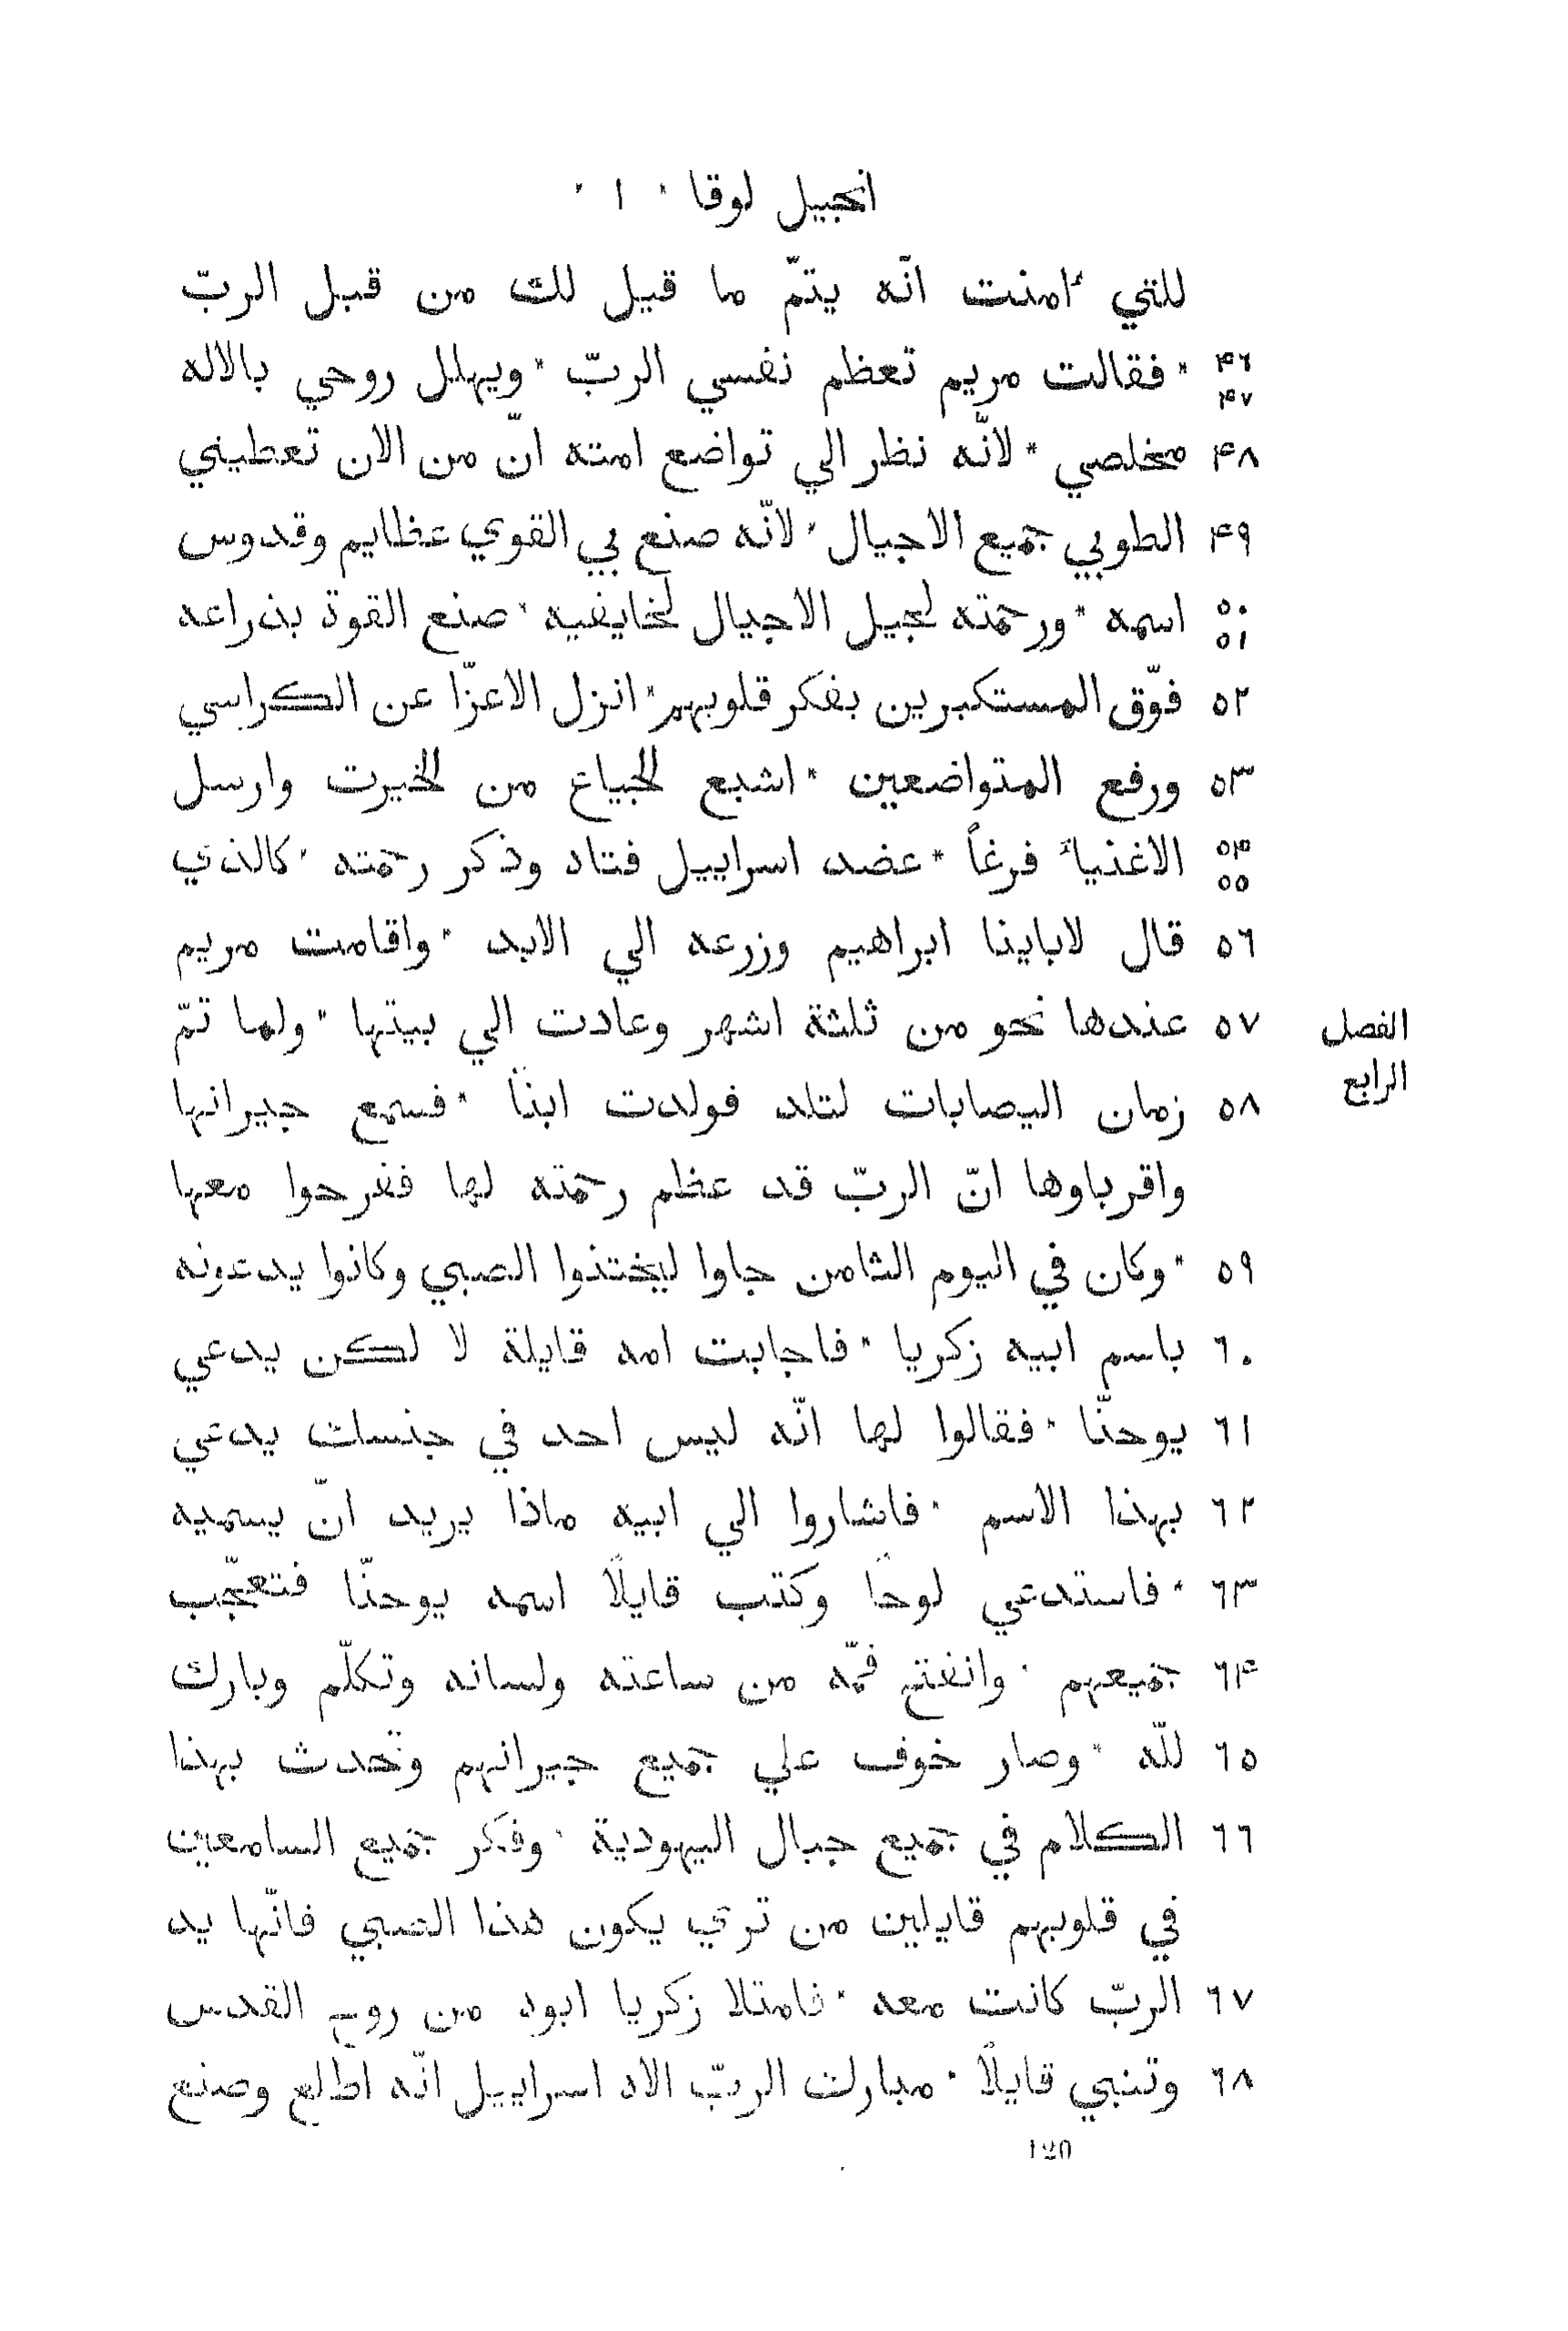 انجيل لوقا * ١ *
للتي ءامنت انّه يتمّ ما قيل لك من قبل الربّ
۴٦ ۴٧ * فقالت مريم تعظم نفسي الربّ * ويهلل روحي بالاله
۴٨ مخلصي * لانّه نظر الي تواضع امته انّ من الان تعطيني
۴٩ الطوبي جميع الاجيال * لانّه صنع بي القوي عظايم وقدوس
٥٠ ٥١ اسمه * ورحمته لجيل الاجيال لخايفيه * صنع القوة بذراعه
٥٢ فوّق المستكبرين بفكر قلوبهم * انزل الاعزّا عن الكراسي
٥٣ ورفع المتواضعين * اشبع الجياع من الخيرت وارسل
٥۴ ٥٥ الاغنياءً فرغاً * عضد اسراييل فتاه وذكر رحمته * كالذي
٥٦ قال لاباينا ابراهيم وزرعه الي الابد * واقامت مريم
٥٧ عندها نحو من ثلثة اشهر وعادت الي بيتها * ولما تمّ
الفصل الرابع
٥٨ زمان اليصابات لتلد فولدت ابناً * فسمع جيرانها
واقرباوها انّ الربّ قد عظم رحمته لها ففرحوا معها
٥٩ * وكان في اليوم الثامن جاوا ليختنوا الصبي وكانوا يدعونه
٦٠ باسم ابيه زكريا * فاجابت امه قايلة لا لكن يدعي
٦١ يوحنّا * فقالوا لها انّه ليس احد في جنسك يدعي
٦٢ بهذا الاسم * فاشاروا الي ابيه ماذا يريد انّ يسميه
٦٣ * فاستدعي لوحاً وكتب قايلاً اسمه يوحنّا فتعجّب
٦۴ جميعهم * وانفتح فمّه من ساعته ولسانه وتكلّم وبارك
٦٥ للّه * وصار خوف علي جميع جيرانهم وتحدث بهذا
٦٦ الكلام في جميع جبال اليهودية * وفكر جميع السامعين
في قلوبهم قايلين من تري يكون هذا الصبي فانّها يد
٦٧ الربّ كانت معه * فامتلا زكريا ابوه من روح القدس
٦٨ وتنبي قايلاً * مبارك الربّ الاه اسراييل انّه اطلع وصنع
120